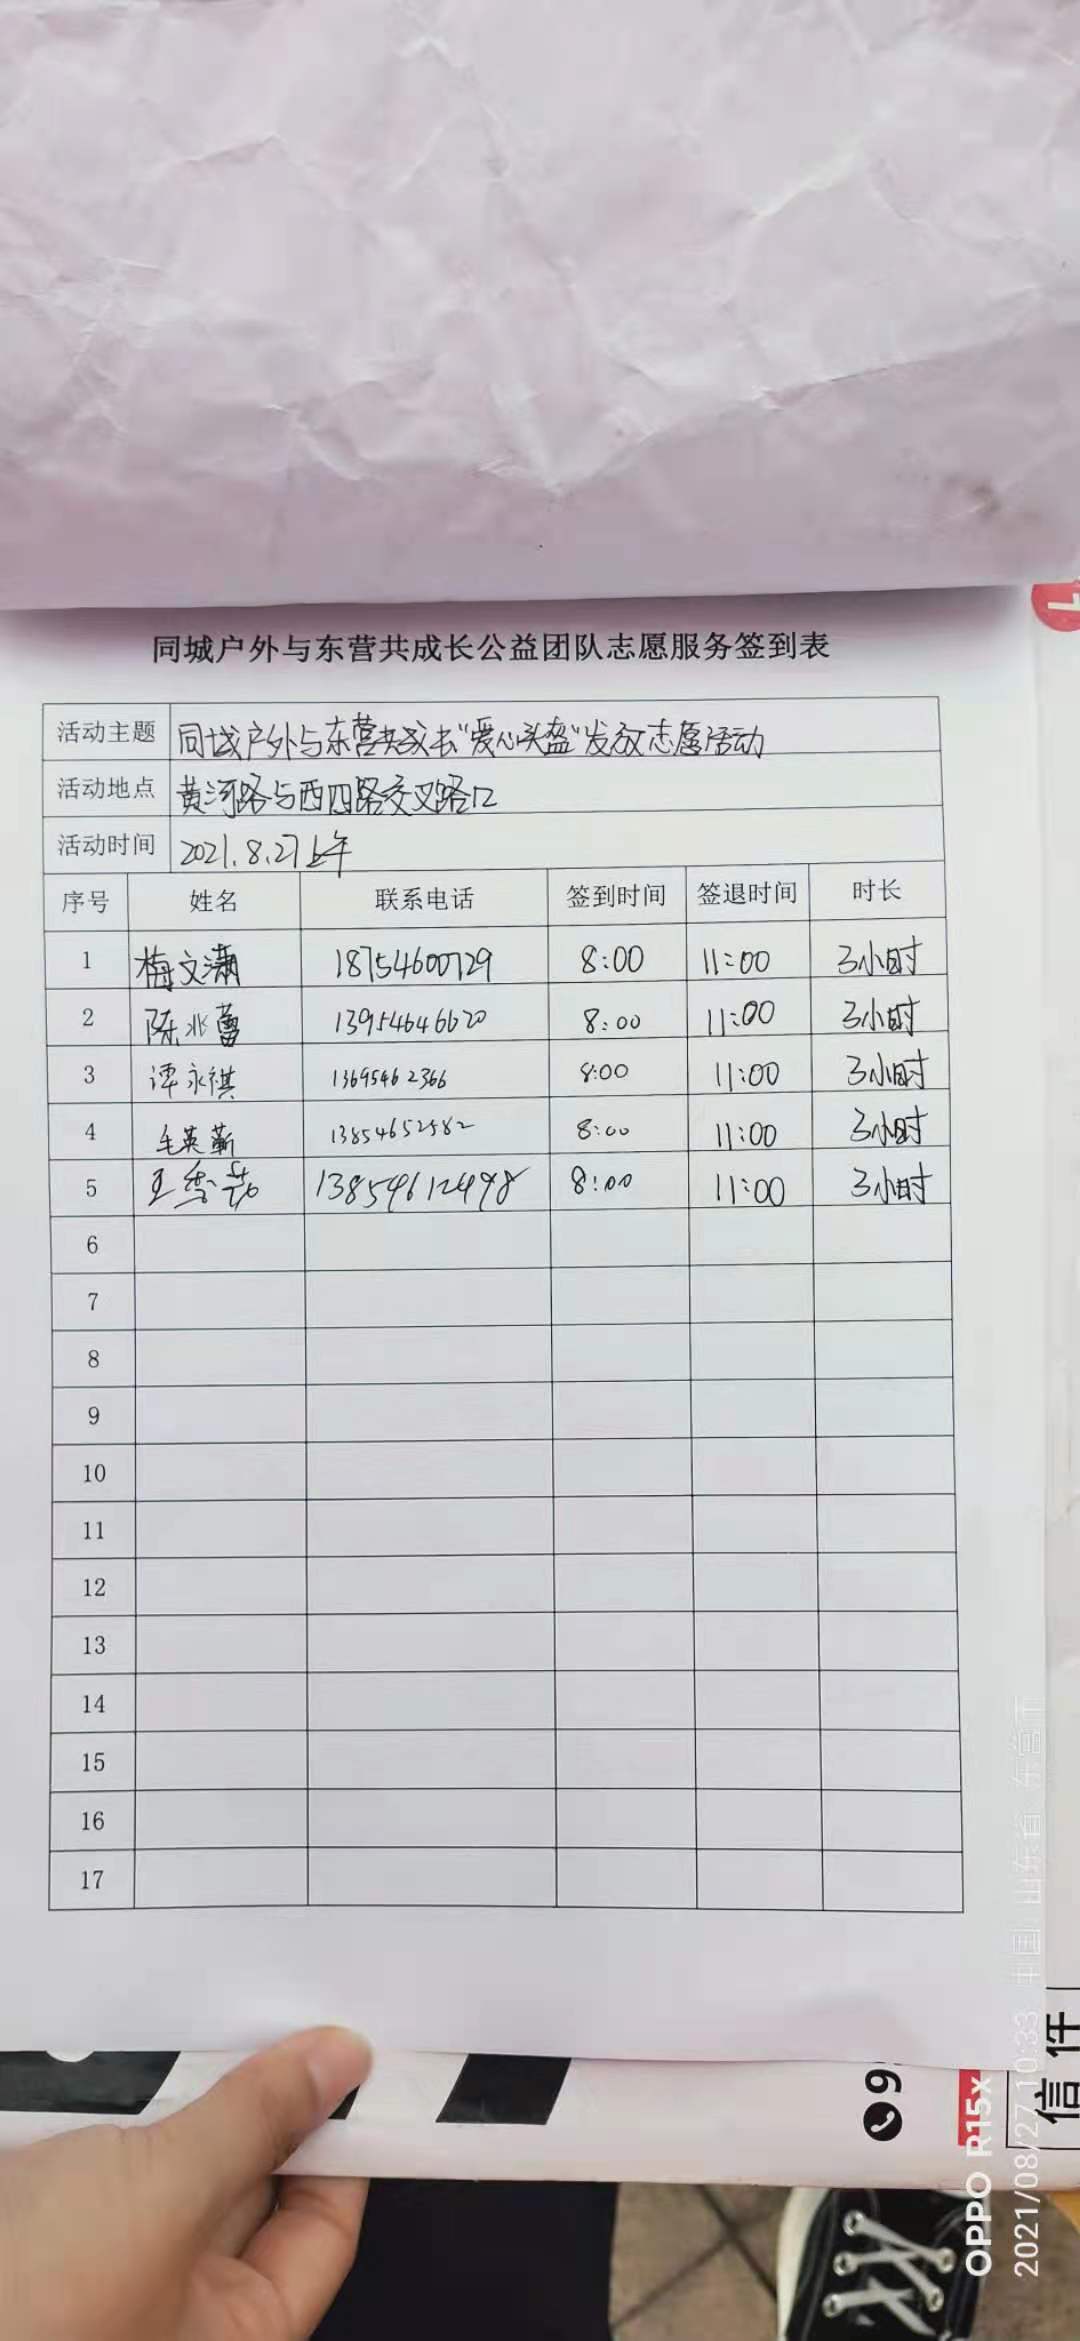 同城户外与东营共成长公益团队志愿服务签到表
活动主题 同城户外与东营共成长"爱心头盔"发放志愿活动
活动地点 黄河路与西四路交叉路口
活动时间 2021.8.27上午
序号 姓名 联系电话 签到时间 签退时间 时长
1 梅文潇 18754600729 8:00 11:00 3小时
2 陈兆蕾 13954646620 8:00 11:00 3小时
3 谭永祺 13695462366 8:00 11:00 3小时
4 毛英蕲 13854652582 8:00 11:00 3小时
5 王雪莎 13854612498 8:00 11:00 3小时
6
7
8
9
10
11
12
13
14
15
16
17
信任
9
OPPO R15x
2021/08/27 10:33 中国 山东省 东营市